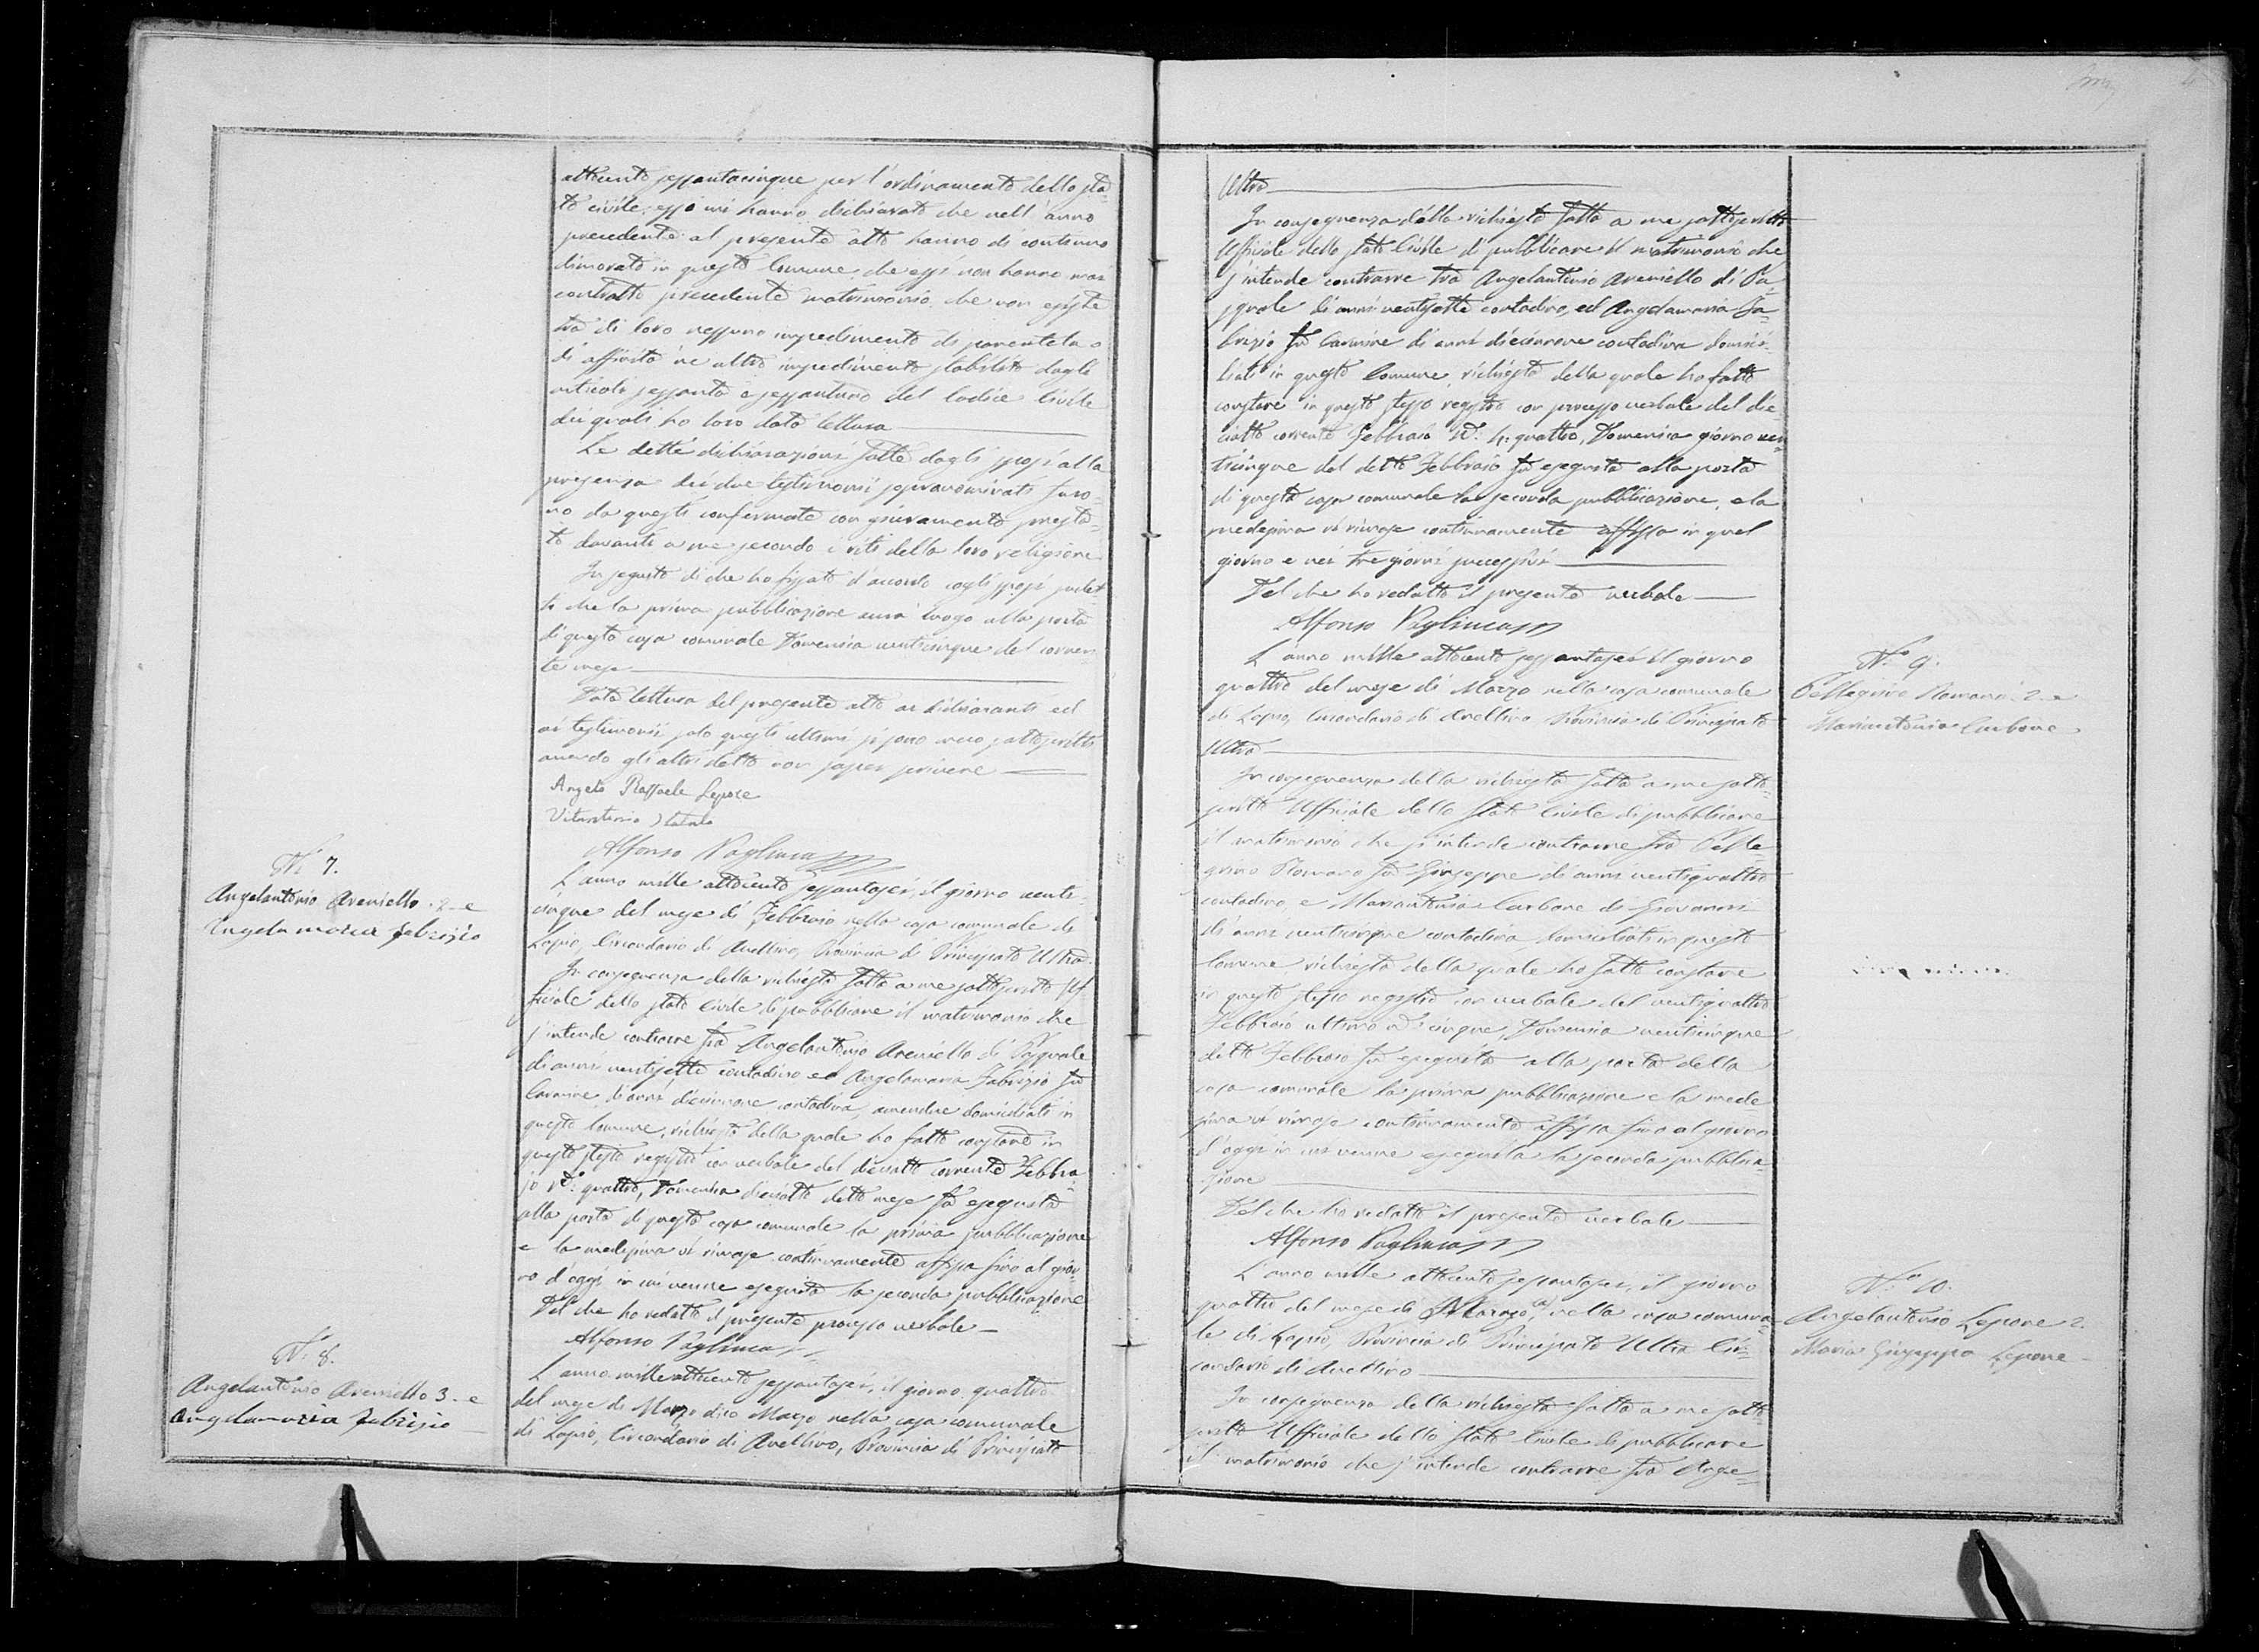 ottocento sessantacinque per l'ordinamento dello sta-
to civile; essi mi hanno dichiarato che nell'anno
precedente al presente atto hanno di continuo
dimorato in questo Comune, che essi non hanno mai
contratto precedente matrimonio, che non esiste
tra di loro nessuno impedimento di parentela o
di affinità ne altro impedimento stabilito dagli
articoli sessanta e sessantuno del Codice Civile
dei quali ho loro dato lettura
Le dette dichiarazioni fatte dagli sposi alla
presenza dei due testimonii sopranominati furo-
no da questi confermate con giuramento presta-
to davanti a me secondo i riti della loro religione
In seguito di che ho fissato d'accordo cogli sposi sudet-
ti che la prima pubblicazione avrà luogo alla porta
di questa casa comunale Domenica venticinque del corren-
te mese
Data lettura del presente atto ai dichiaranti ed
ai testimonii solo questi ultimi si sono meco sottoscritti
avendo gli altri detto non saper scrivere
Angelo Raffaele Lepore
Vitantonio
Alfonso Pagliuca
N.° 7.
Angelantonio Areniello . 2 - e
Angela maria fabrizio
L'anno mille ottocento sessantasei, il giorno venti-
cinque del mese di Febbraio nella casa comunale di
Lapio, Circondario di Avellino, Provincia di Principato Ultra.
In conseguenza della richiesta fatta a me sottoscritto Uf-
ficiale dello stato Civile di pubblicare il matrimonio che
s'intende contrarre fra Angelantonio Areniello di Pasquale
di anni ventisette contadino ed Angelamaria Fabrizio fu
Carmine di anni diecinnove contadina, amendue domiciliati in
questo Comune, richiesta della quale ho fatto constare in
questo stesso registro con verbale del dieciotto corrente Febbra-
jo N.° quattro, Domenica dieciotto detto mese fu eseguita
alla porta di questa casa comunale la prima pubblicazione
e la medesima vi rimase continuamente affissa fino al gior-
no d'oggi in cui venne eseguita la seconda pubblicazione
Del che ho redatto il presente processo verbale
Alfonso Pagliuca
N.° 8.
Angelantonio Areniello 3 - e
Angelamaria fabrizio
L'anno milleottocento sessantasei, il giorno quattro
del mese di Marzo dico Marzo nella casa comunale
di Lapio, Circondario di Avellino, Provincia di Principato
Ultra
In conseguenza della richiesta fatta a me sottoscritto
Ufficiale dello stato Civile di pubblicare il matrimonio che
s'intende contrarre tra Angelantonio Areniello di Pa-
squale di anni ventisette contadino, ed Angelamaria Fa-
brizio fu Carmine di anni diecinnove contadina domici-
liati in questo Comune, richiesta della quale ho fatto
constare in questo stesso registro con processo verbale del die-
ciotto corrente Febbraio N.° quattro, Domenica giorno ven-
ticinque del detto Febbraio fu eseguita alla porta
di questa casa comunale la seconda pubblicazione, e la
medesima vi rimase continuamente affissa in quel
giorno e nei tre giorni successivi
Del che ho redatto il presente verbale
Alfonso Pagliuca
N.° 9.
Pellegrino Romano . 2 - e
Mariantonia Carbone
L'anno mille ottocento sessantasei il giorno
quattro del mese di Marzo nella casa comunale
di Lapio, Circondario di Avellino Provincia di Principato
Ultra
In conseguenza della richiesta fatta a me sotto-
scritto Ufficiale dello Stato Civile di pubblicare
il matrimonio che s'intende contrarre fra Pelle-
grino Romano fu Giuseppe di anni ventiquattro
contadino, e Mariantonia Carbone di Giovanni
di anni venticinque contadina, domiciliati in questo
Comune richiesta della quale ho fatto constare
in questo stesso registro con verbale del ventiquattro
Febbraio ultimo N.° cinque, Domenica venticinque
detto Febbraio fu eseguita alla porta della
casa comunale la prima pubblicazione e la mede-
sima vi rimase continuamente affissa fino al giorno
d'oggi in cui venne eseguita la seconda pubblica-
zione
Del che ho redatto il presente verbale
Alfonso Pagliuca
N.° 10.
Angelantonio Lepore 2.
Maria Giuseppa Lepore
L'anno mille ottocento sessantasei, il giorno
quattro del mese di Marzo, nella casa comuna-
le di Lapio, Provincia di Principato Ultra Cir-
condario di Avellino
In conseguenza della richiesta fatta a me sotto-
scritto Ufficiale dello Stato Civile di pubblicare
il matrimonio che s'intende contrarre fra Ange-